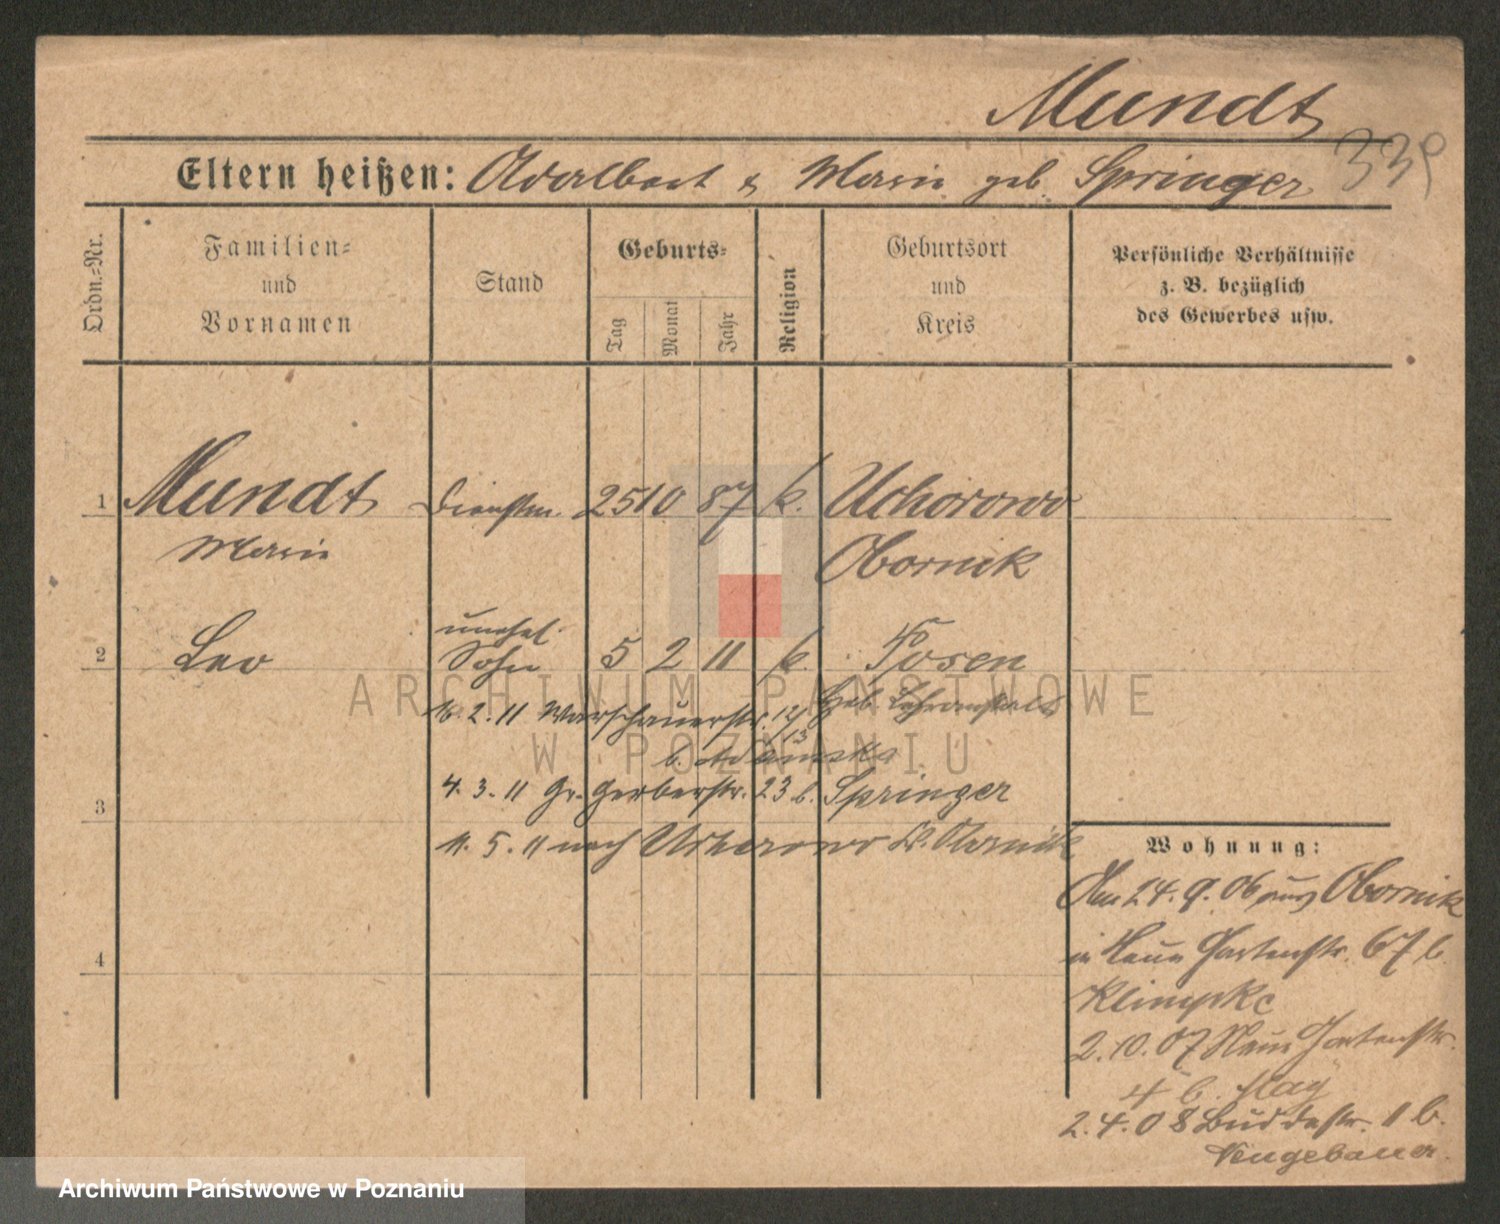 Mundt
339
Eltern heißen: Adalbert & Marie geb. Springer
Ordn.=Nr.
Familien=
und
Vornamen
Stand
Geburts=
Tag
Monat
Jahr
Religion
Geburtsort
und
Kreis
Persönliche Verhältnisse
z. B. bezüglich
des Gewerbes usw.
1 Mundt Dienstm. 25 10 87 k. Uchorowo
Marie Obornik
unehel.
2 Leo Sohn 5 2 11 k. Posen
Heb. Lehranstalt
16.2.11 Warschauerstr. 12/13
b. Adamska
4.3.11 Gr. Gerberstr. 23 b. Springer
3
11.5.11 nach Uchorowo Kr. Obornik
4
Wohnung:
Am 24.9.06 aus Obornik
in Neue Gartenstr. 67 b.
Klimpke
2.10.07 Neue Gartenstr.
4 b. May
2.4.08 Buddestr. 11 b.
Neugebauer.
ARCHIWUM PAŃSTWOWE
W POZNANIU
Archiwum Państwowe w Poznaniu